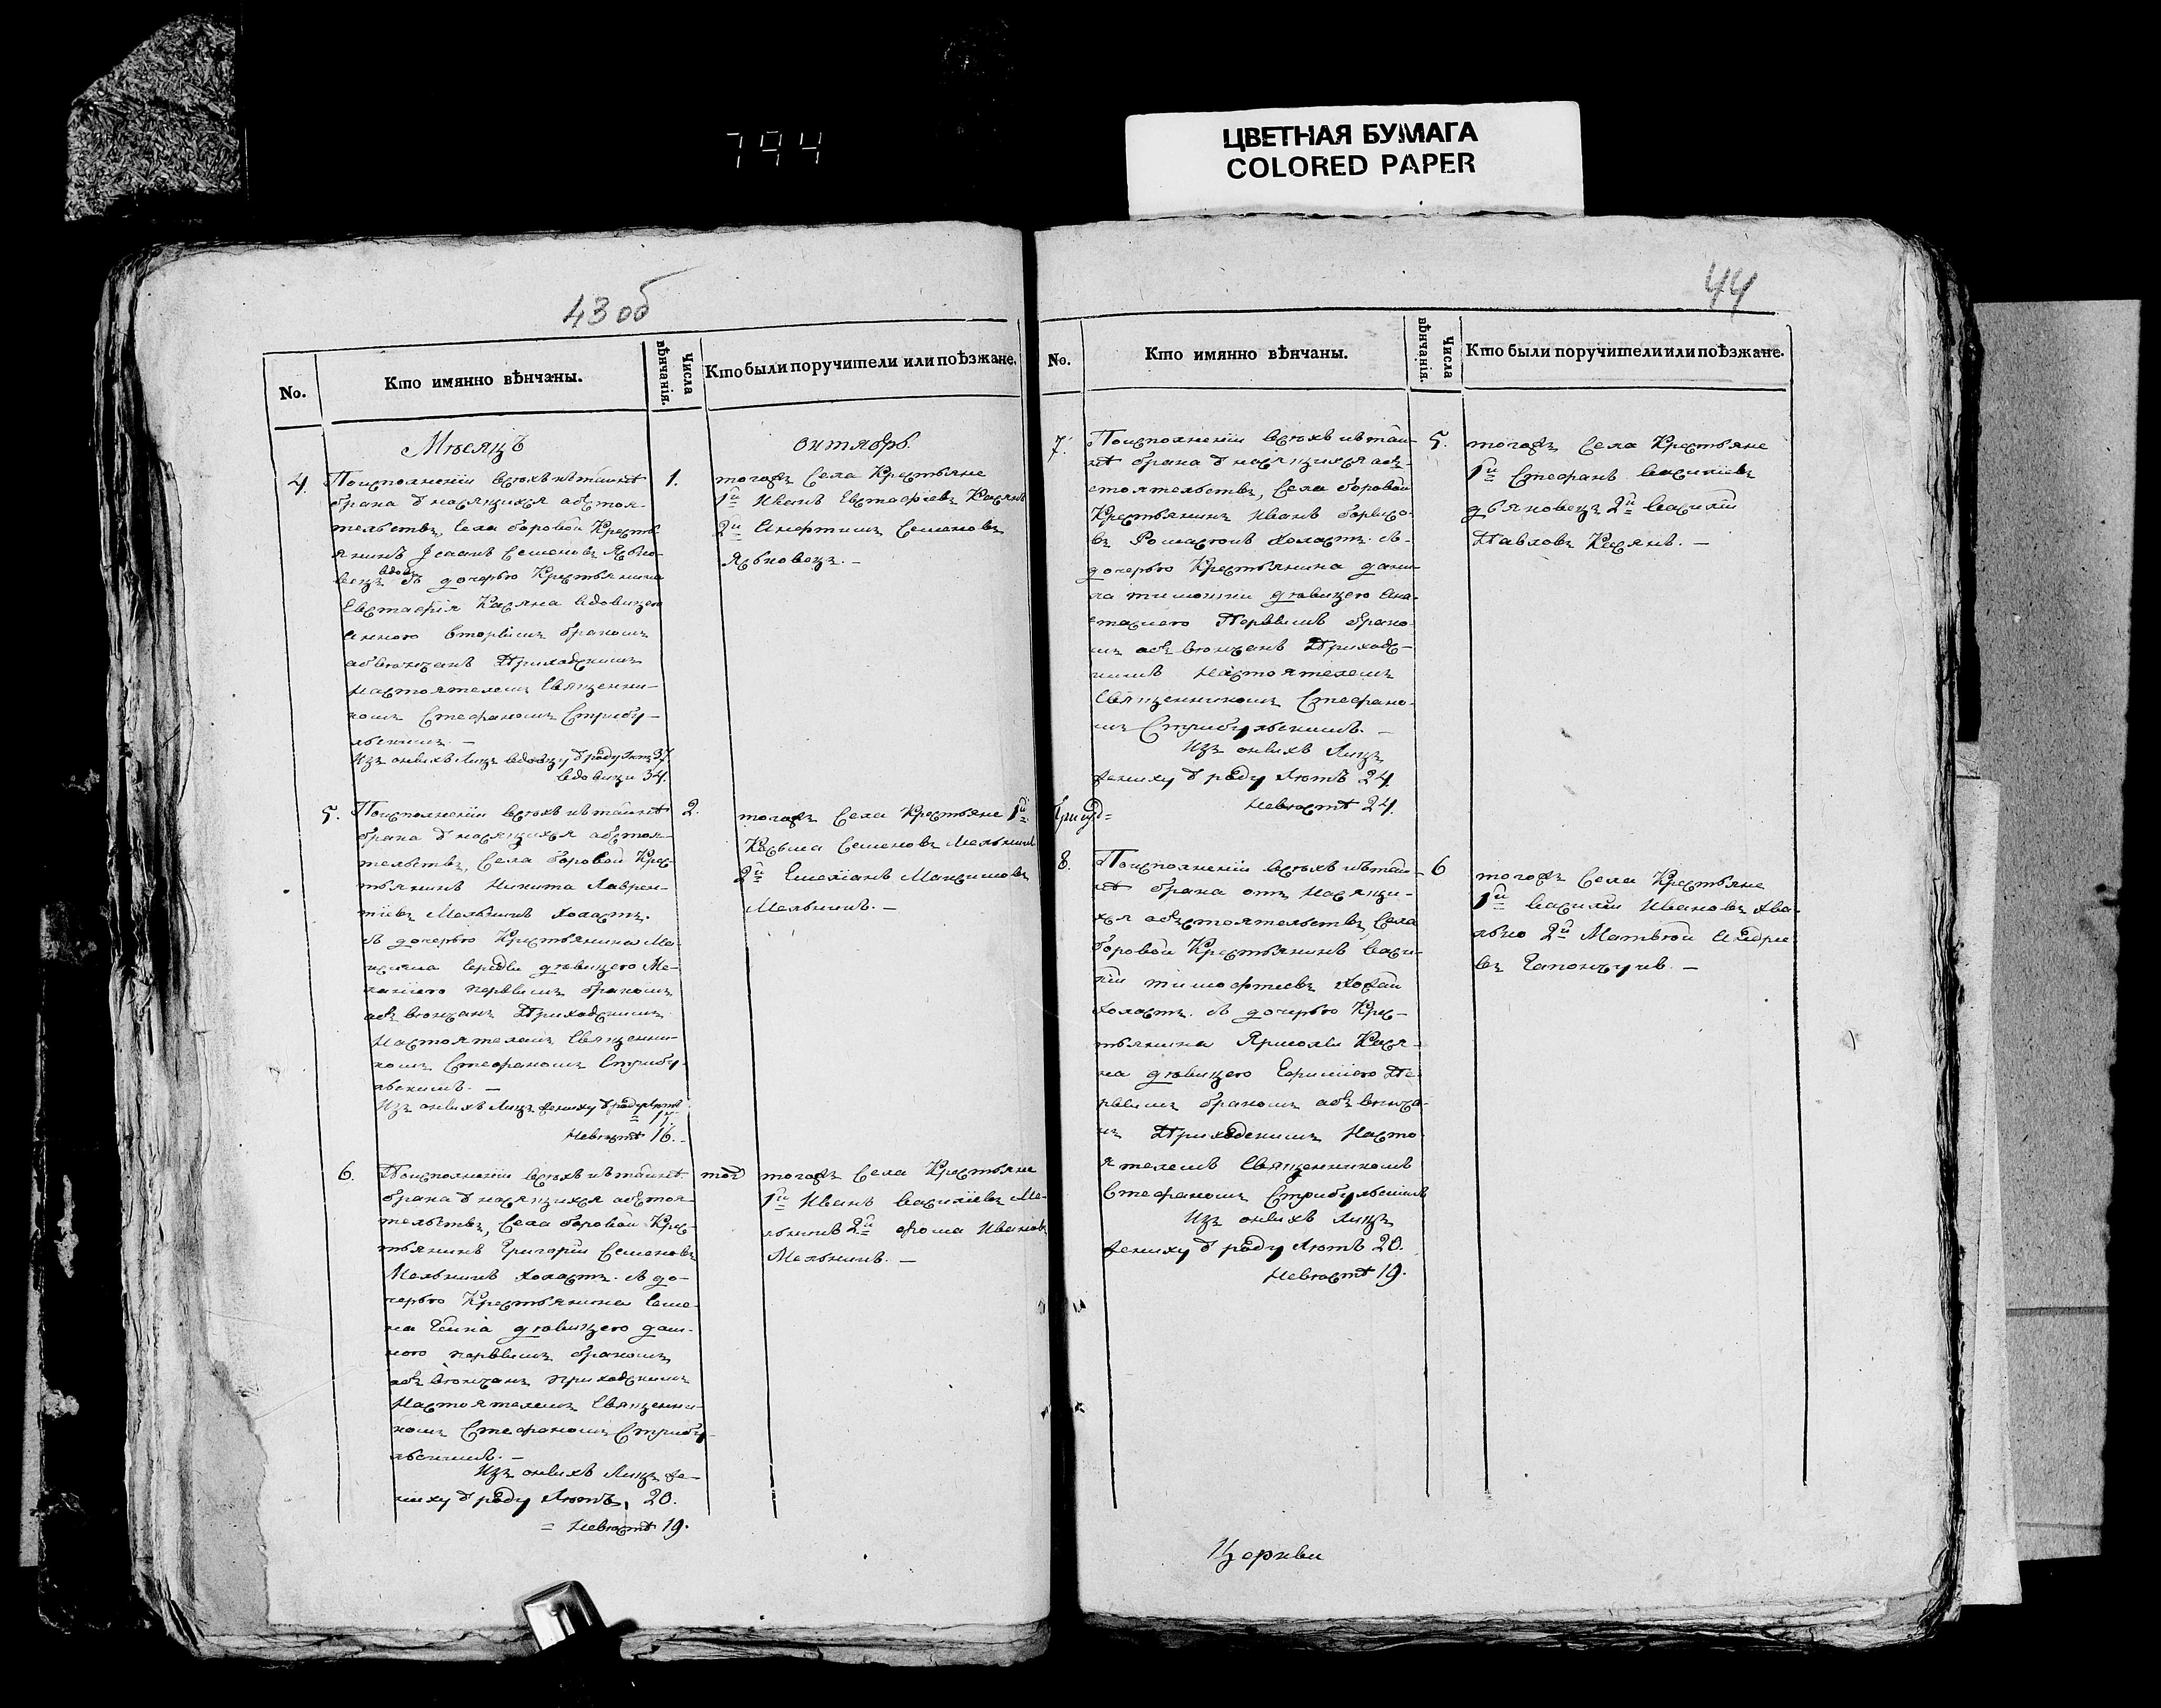 794
ЦВЕТНАЯ БУМАГА
COLORED PAPER
43 об
No.
Кто имянно вѣнчаны.
Числа вѣнчанія.
Кто были поручители или поѣзжане.
Мѣсяцъ
октябрь
4.
По исполненіи всѣхъ къ таинѣ
брака ѿносящихся абстоя-
тельствъ, Села боровой Кресть
янинъ Іоаннъ Семеновъ Ясьно-
вецъ вдовъ съ дочерью Крестьянина
Евстафія Касяна вдовицею
Анною вторымъ бракомъ
абвѣнчанъ Приходскимъ
Настоятелемъ Священни-
комъ Стефаномъ Стрибу-
льскимъ. —
Изъ оныхъ Лицъ вдовцу ѿроду лѣтъ 37.
вдовици 34.
1.
тогожъ Села Крестьяне
1й Иванъ Евстафіевъ Касянъ
2й Анфтимъ Семеновъ
Ясьновецъ. —
5.
По исполненіи всѣхъ къ таинѣ
брака ѿносящихся абстоя-
тельствъ, Села боровой Крес-
тьянинъ Никита Лаврен-
тіевъ Мельникъ холастъ.
съ дочерью Крестьянина Ма-
ксима Середы дѣвицею Ме-
ланіею первымъ бракомъ
абъвѣнчанъ Приходскимъ
Настоятелемъ Священни-
комъ Стефаномъ Стрибу-
льскимъ. —
Изъ оныхъ Лицъ жениху ѿроду лѣтъ
Невѣстѣ 16.
2.
тогожъ Села Крестьяне 1й
Косьма Семеновъ Мельникъ
2й Емеліанъ Максимовъ
Мельникъ. —
6.
По исполненіи всѣхъ къ таинѣ
брака ѿносящихся абстоя-
тельствъ, Села боровой Крес-
тьянинъ Григорій Семеновъ
Мельникъ холастъ. съ до-
черью Крестьянина Семе-
на дѣвицею дом-
ною первымъ бракомъ
абъвѣнчанъ приходскимъ
Настоятелемъ Священни-
комъ Стефаномъ Стрибу-
льскимъ. —
Изъ оныхъ Лицъ же-
ниху ѿроду Лѣтъ, 20.
= Невѣстѣ 19.
тогожъ Села Крестьяне
1й Иванъ Василіевъ Ме-
льникъ 2й фома Ивановъ
Мельникъ. —
44
No.
Кто имянно вѣнчаны.
Числа вѣнчанія.
Кто были поручители или поѣзжане.
7.
По исполненіи всѣхъ къ таин-
нѣ брака ѿносящихся абъ-
стоятельствъ, Села боровой
Крестьянинъ Иванъ борисо-
въ холастъ. съ
дочерью Крестьянина Дани-
ла дѣвицею Ана-
стасіею Первымъ брако-
мъ абъвѣнчанъ Приходс-
кимъ Настоятелемъ
Священникомъ Стефано-
мъ Стрибульскимъ. —
Изъ оныхъ Лицъ
жениху ѿроду Лѣтъ 24.
Невѣстѣ 24.
5.
тогожъ Села Крестьяне
1й Стефанъ Василіевъ
дьяковецъ 2й Василій
Павловъ Касянъ. —
8.
По исполненіи всѣхъ къ таин-
нѣ брака отъ Носящи-
хся абъстоятельствъ, Села
боровой Крестьянинъ Васи-
лій тимофтеевъ
холастъ. съ дочерью Крес-
тьянина Ярмолы Кася-
на дѣвицею Ефиміею Пе-
рвымъ бракомъ абъвѣнча-
нъ Приходскимъ Насто-
ятелемъ Священникомъ
Стефаномъ Стрибульскимъ
Изъ оныхъ Лицъ
жениху ѿроду Лѣтъ 20.
Невѣстѣ 19.
6
тогожъ Села Крестьяне
1й Василій Ивановъ Хва-
лько 2й Матвѣй Андрее
въ Гапончукъ. —
Церкви